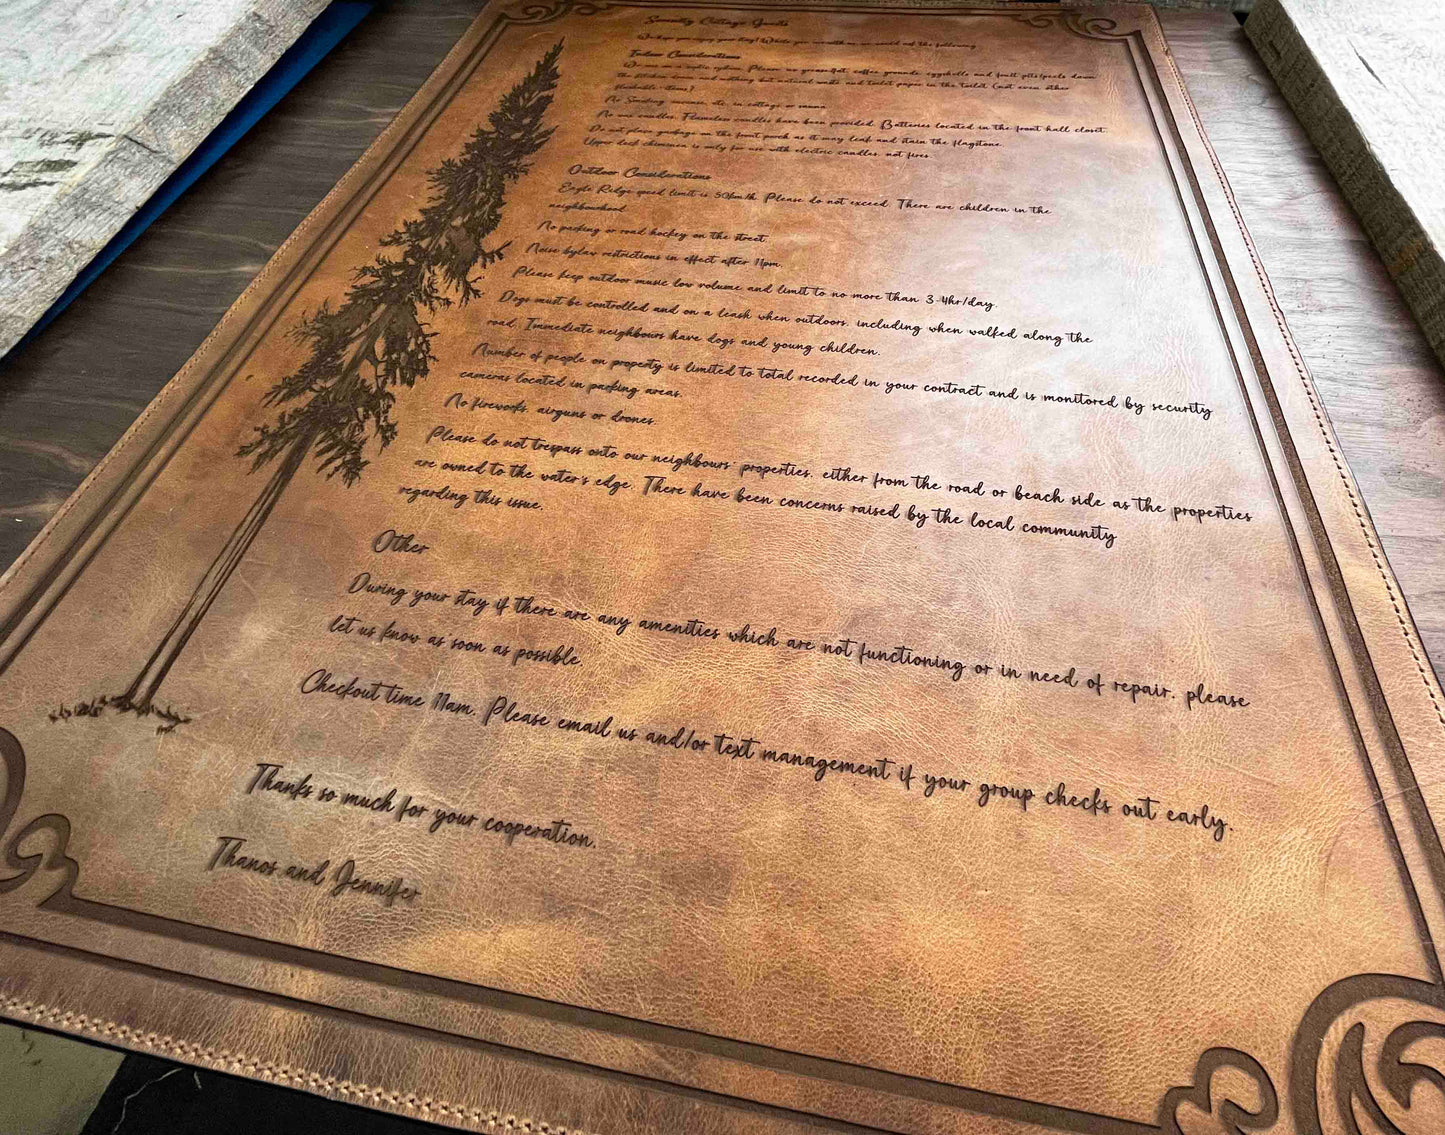 Serenity Cottage Guests
We hope you enjoy your stay! While you are with us, we would ask the following
Indoor Considerations
We are on a septic system. Please no grease/fat, coffee grounds, eggshells and fruit pits/peels down
the kitchen drain and nothing but natural waste and toilet paper in the toilet (not even other
flushable items)
No Smoking, incense, etc. in cottage or sauna.
No wax candles. Flameless candles have been provided. Batteries located in the front hall closet.
Do not place garbage on the front porch as it may leak and stain the flagstone.
Upper deck chiminea is only for use with electric candles, not fires.
Outdoor Considerations
Eagle Ridge speed limit is 50km/h. Please do not exceed. There are children in the
neighbourhood.
No parking or road hockey on the street.
Noise bylaw restrictions in effect after 11pm.
Please keep outdoor music low volume and limit to no more than 3-4hr/day.
Dogs must be controlled and on a leash when outdoors, including when walked along the
road. Immediate neighbours have dogs and young children.
Number of people on property is limited to total recorded in your contract and is monitored by security
cameras located in parking areas.
No fireworks, airguns or drones.
Please do not trespass onto our neighbours' properties, either from the road or beach side as the properties
are owned to the water's edge. There have been concerns raised by the local community
regarding this issue.
Other
During your stay if there are any amenities which are not functioning or in need of repair, please
let us know as soon as possible.
Checkout time 11am. Please email us and/or text management if your group checks out early.
Thanks so much for your cooperation.
Thanos and Jennifer